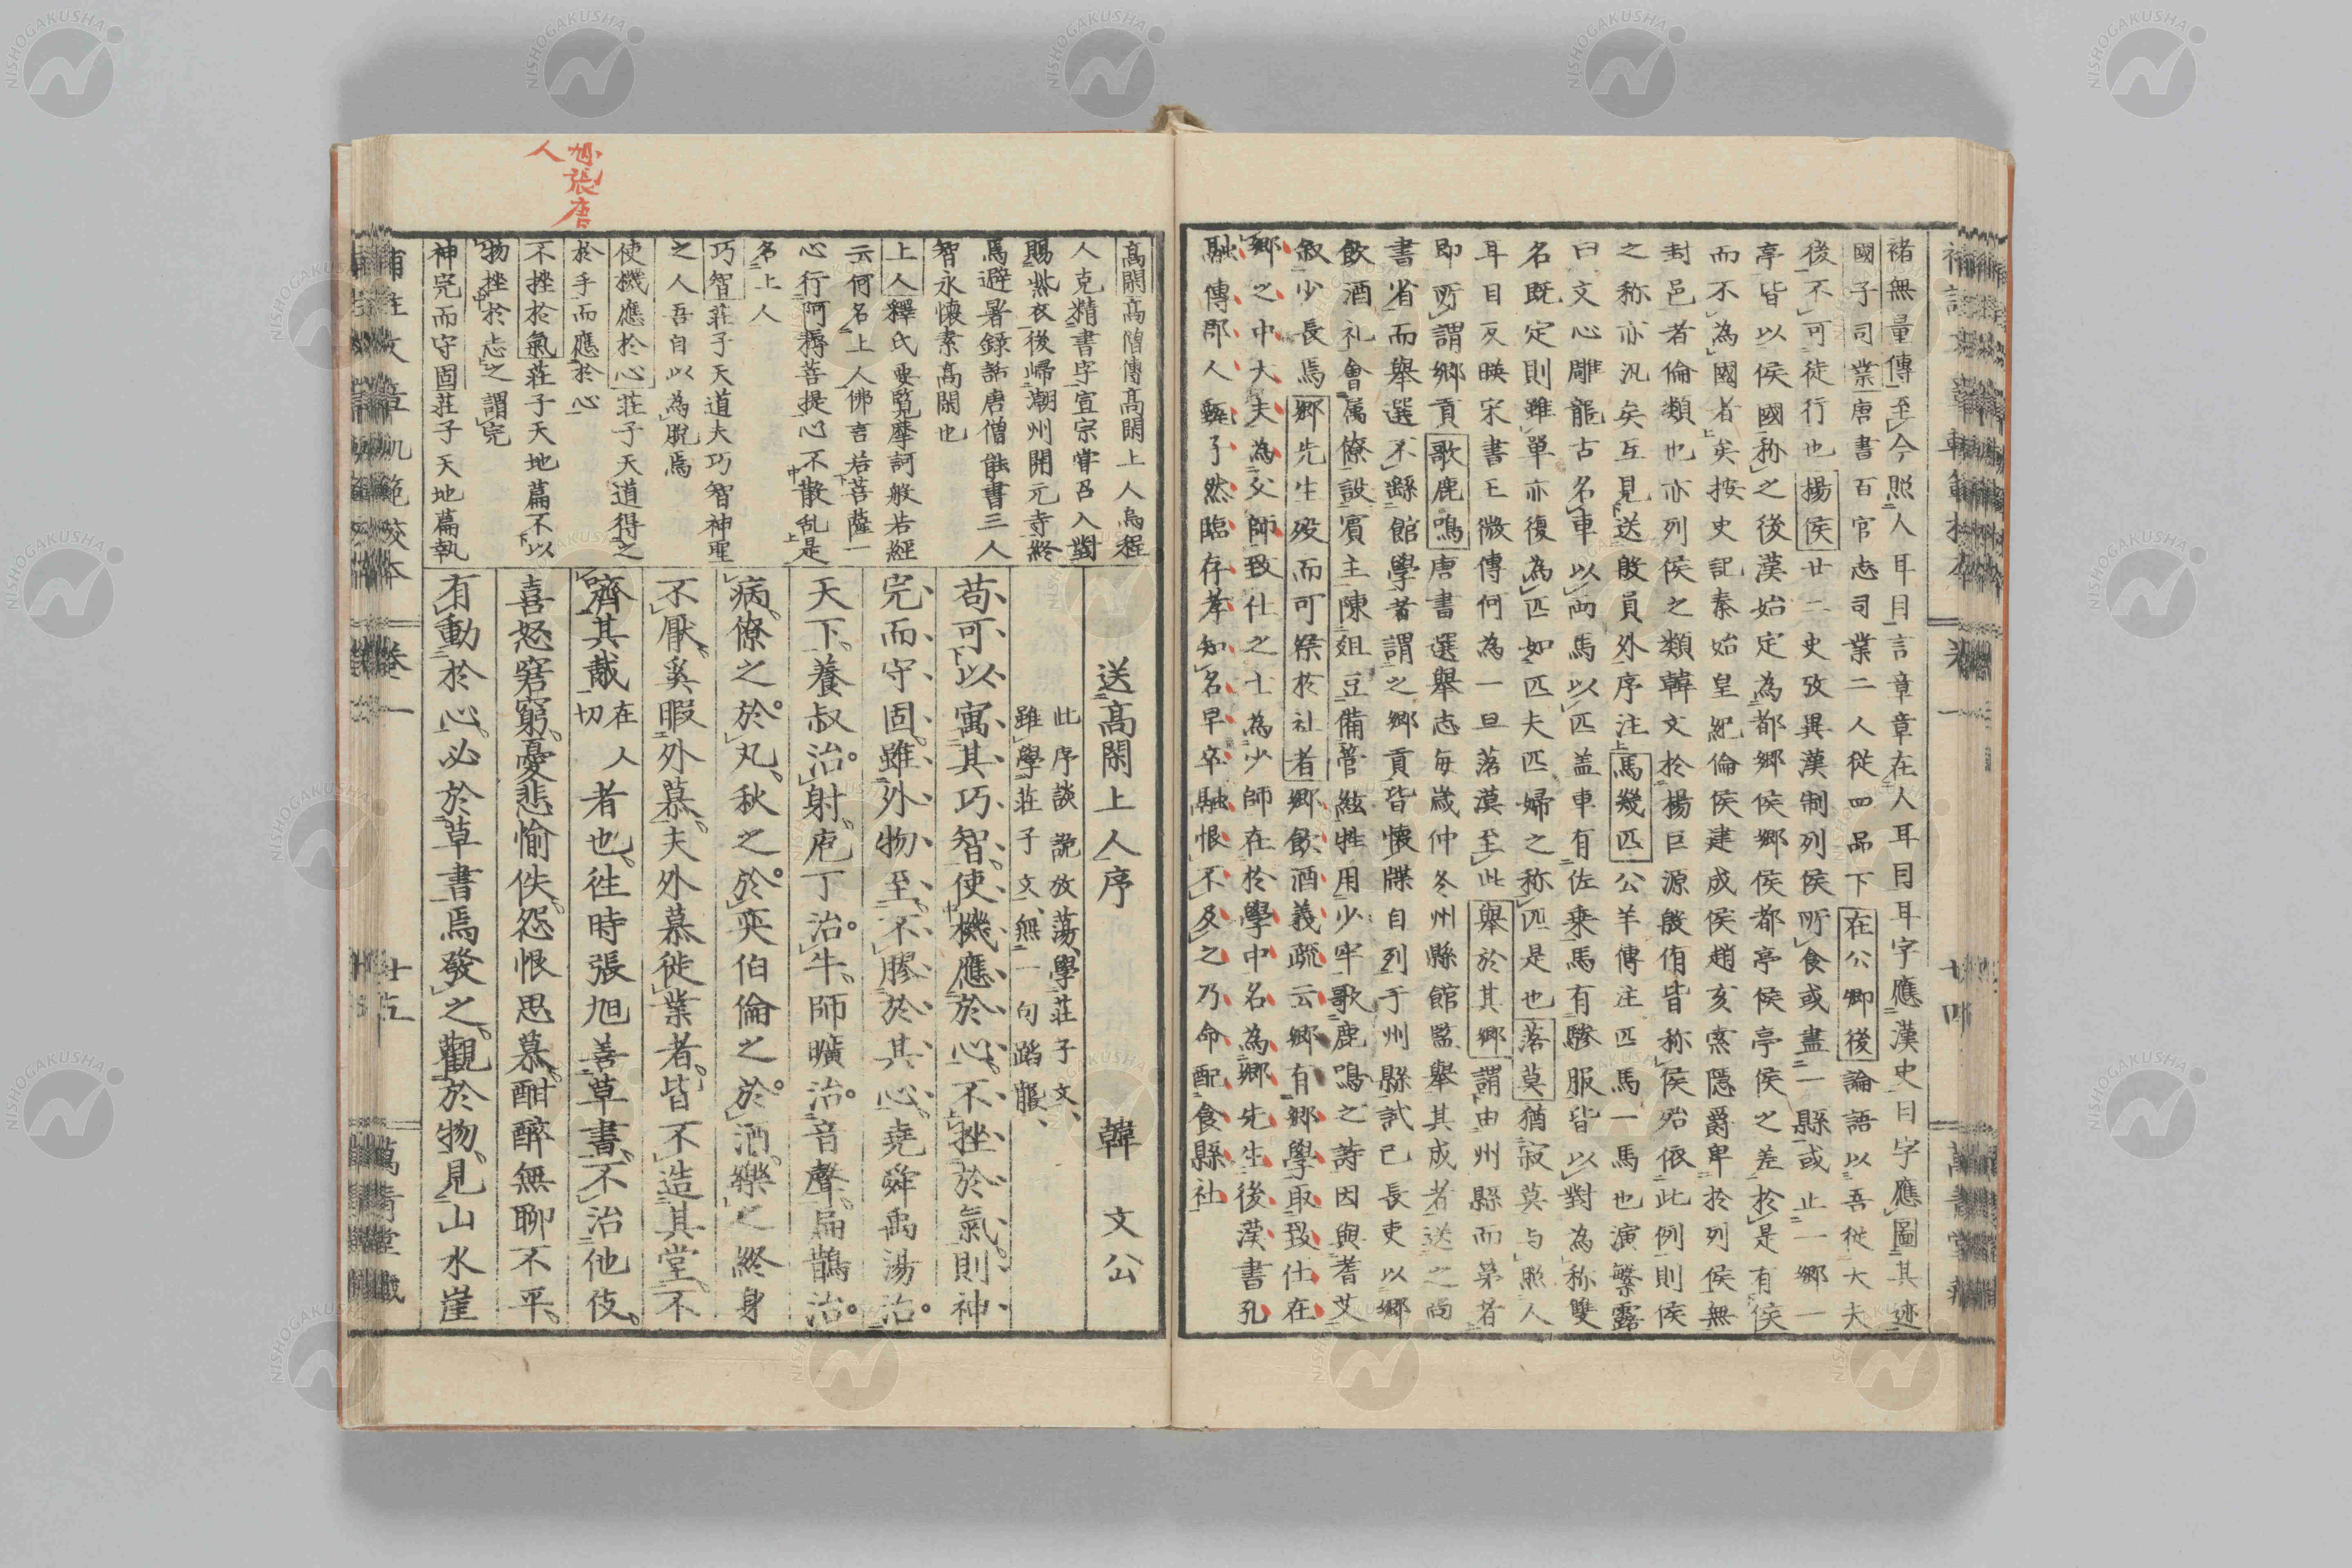 褚無量傳至今照人耳目言章章在人耳目耳字應漢史目字應圖其迹
國子司業唐書百官志司業二人從四品下在公卿後論語以吾從大夫
後不可徒行也楊侯廿二史攷異漢制列侯所食或盡一縣或止一鄉一
亭皆以侯國称之後漢始定為都鄉侯鄉侯都亭侯亭侯之差於是有侯
而不為國者矣按史記秦始皇紀倫侯建成侯趙亥索隱爵卑於列侯無
封邑者倫類也亦列侯之類韓文於楊巨源殷侑皆称侯殆依此例則侯
之称亦汎矣互見送殷員外序注馬幾匹公羊傳注匹馬一馬也演繁露
曰文心雕龍古名車以両馬以匹盖車有佐乗馬有驂服皆以對為称雙
名既定則雖單亦復為匹如匹夫匹婦之称匹是也落莫猶寂莫与照人
耳目反映宋書王微傳何為一旦落漠至此舉於其鄉謂由州縣而第者
即所謂鄉貢歌鹿鳴唐書選舉志每歳仲冬州縣館監舉其成者送之尚
書省而舉選不繇館學者謂之鄉貢皆懐牒自列于州縣試已長吏以鄉
飲酒礼會属僚設賔主陳俎豆備管絃牲用少牢歌鹿鳴之詩因與耆艾
叙少長焉鄉先生歿而可祭於社者鄉飲酒義疏云鄉有鄉學取致仕在
鄉之中大夫為父師致仕之士為少師在於學中名為鄉先生後漢書孔
融傳郡人甄子然臨存孝知名早卒融恨不及之乃命配食縣社
旭張唐
人
高閑高僧傳高閑上人烏程
人克精書字宣宗甞召入對
賜紫衣後歸湖州開元寺終
焉避暑録話唐僧能書三人
智永懐素高閑也
上人釋氏要覧摩訶般若經
云何名上人佛言若菩薩一
心行阿耨菩提心不散乱是
名上人
巧智莊子天道夫巧智神聖
之人吾自以為脱焉
使機應於心莊子天道得之
於手而應於心
不挫於氣莊子天地篇不以
物挫於志之謂完
神完而守固莊子天地篇執
送高閑上人序　韓文公
此序談詭放蕩學莊子文
雖學莊子文無一句蹈襲
苟可以寓其巧智使機應於心不挫於氣則神
完而守固雖外物至不膠於其心堯舜禹湯治
天下養叔治射庖丁治牛師曠治音聲扁鵲治
病僚之於丸秋之於奕伯倫之於酒樂之終身
不厭奚暇外慕夫外慕徙業者皆不造其堂不
嚌其胾一切在人者也往時張旭善草書不治他伎
喜怒窘窮憂悲愉佚怨恨思慕酣醉無聊不平
有動於心必於草書焉發之觀於物見山水崖
補註文章軌範校本　卷一　廿五